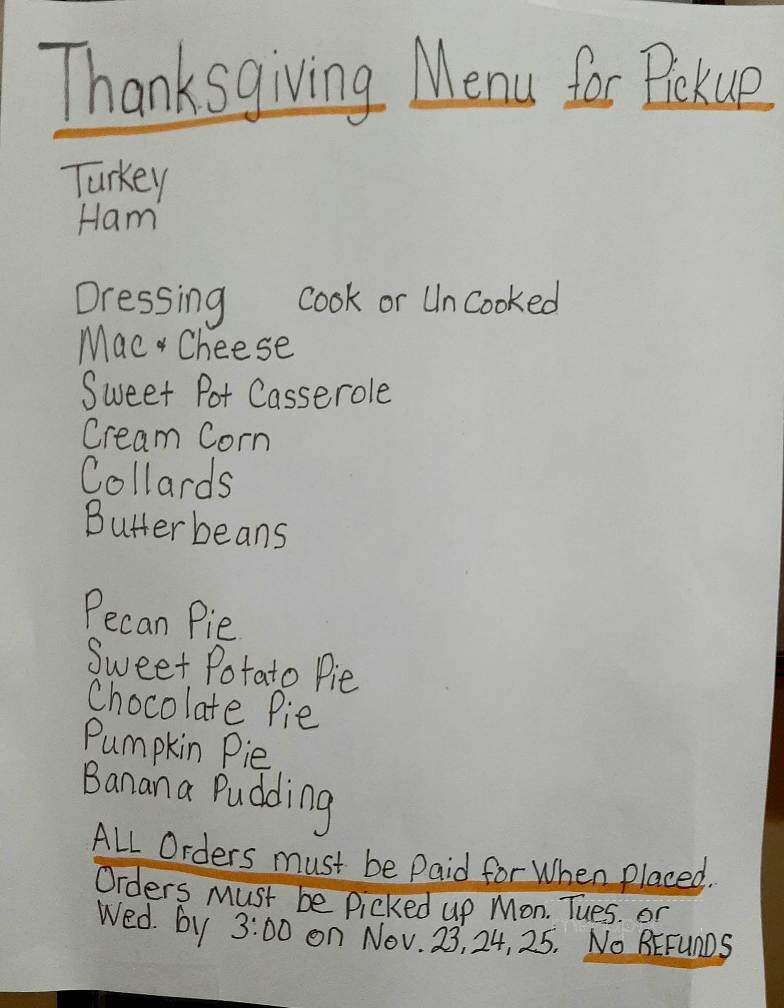 Thanksgiving Menu for Pickup
Turkey
Ham
Dressing Cook or UnCooked
Mac & Cheese
Sweet Pot Casserole
Cream Corn
Collards
Butterbeans
Pecan Pie
Sweet Potato Pie
Chocolate Pie
Pumpkin Pie
Banana Pudding
ALL Orders must be Paid for When Placed.
Orders Must be Picked up Mon. Tues. or
Wed. by 3:00 on Nov. 23, 24, 25. No REFUNDS